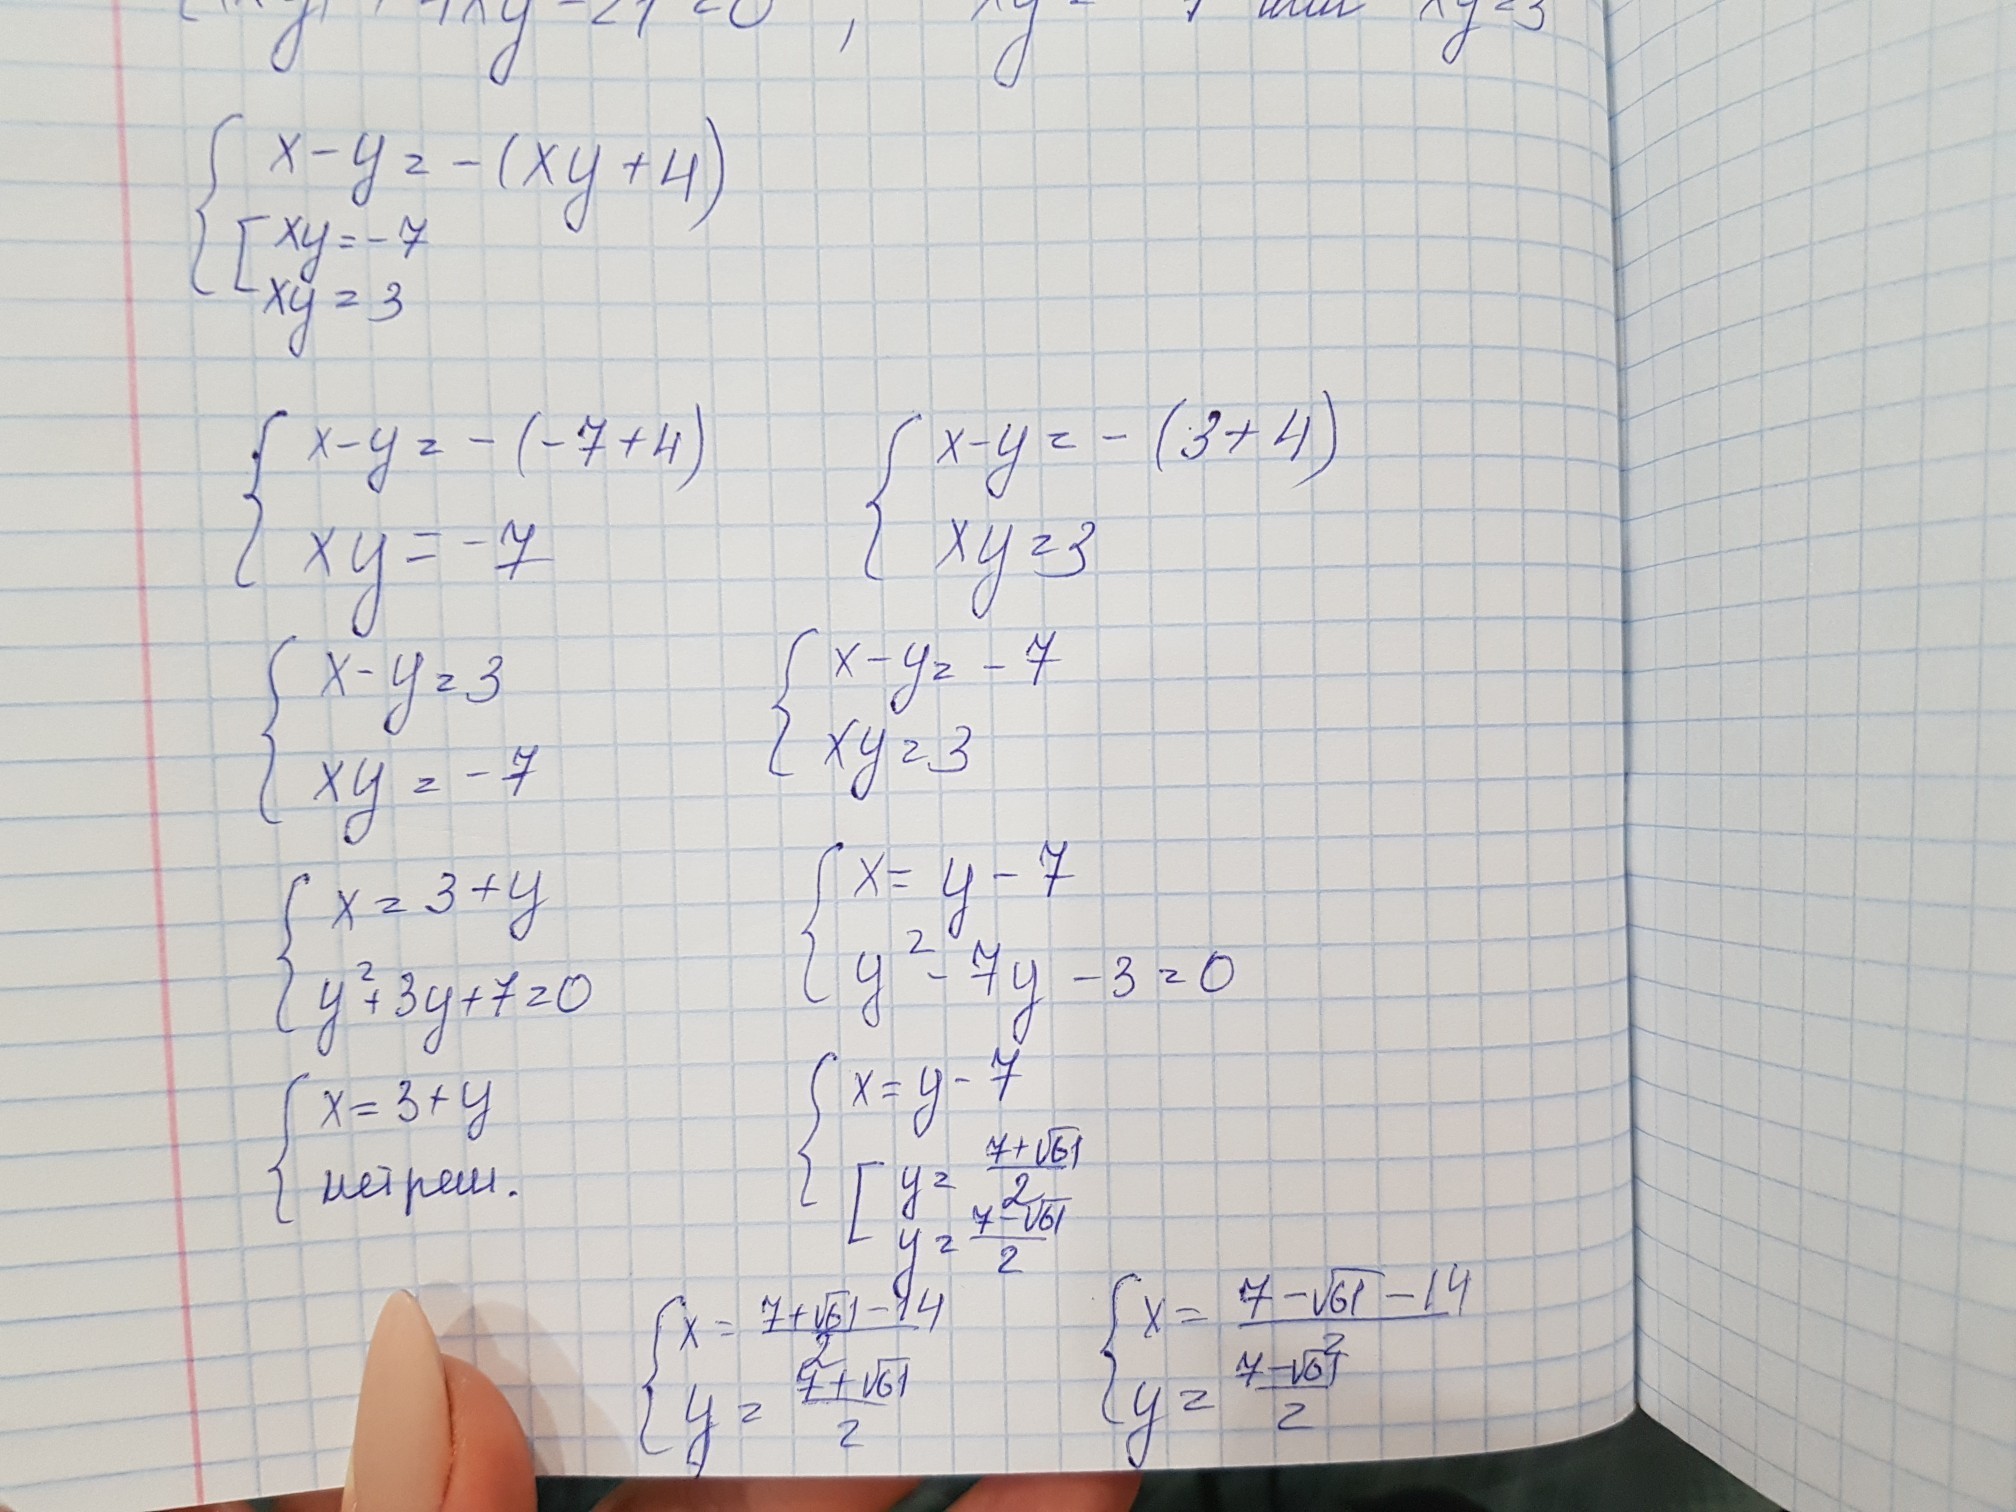 + 4xy - 21 = 0, xy = -7 или xy = 3
x - y = -(xy + 4)
xy = -7
xy = 3
x - y = -(-7 + 4) x - y = -(3 + 4)
xy = -7 xy = 3
x - y = 3 x - y = -7
xy = -7 xy = 3
x = 3 + y x = y - 7
y² + 3y + 7 = 0 y² - 7y - 3 = 0
x = 3 + y x = y - 7
нет реш. y = (7 + √61)/2
y = (7 - √61)/2
x = (7 + √61 - 14)/2 x = (7 - √61 - 14)/2
y = (7 + √61)/2 y = (7 - √61)/2